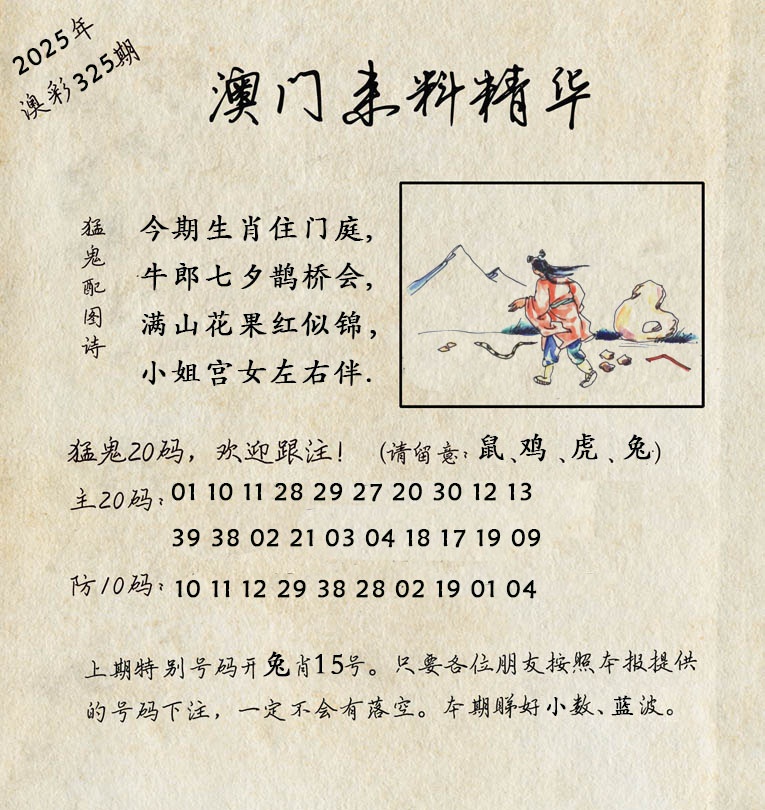 2025年
澳彩325期
澳门来料精华
猛鬼配图诗
今期生肖住门庭，
牛郎七夕鹊桥会，
满山花果红似锦，
小姐宫女左右伴.
猛鬼20码，欢迎跟注！（请留意：鼠、鸡、虎、兔）
主20码：01 10 11 28 29 27 20 30 12 13
39 38 02 21 03 04 18 17 19 09
防10码：10 11 12 29 38 28 02 19 01 04
上期特别号码开兔肖15号。只要各位朋友按照本报提供
的号码下注，一定不会有落空。本期睇好小数、蓝波。